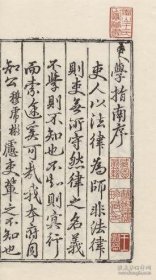 學指南序
吏人以法律為師非法律
則吏無所守然律之名義
不學則不知也不知則冥行
而索途奚可哉我本府同
知公慮吏輩之不知也